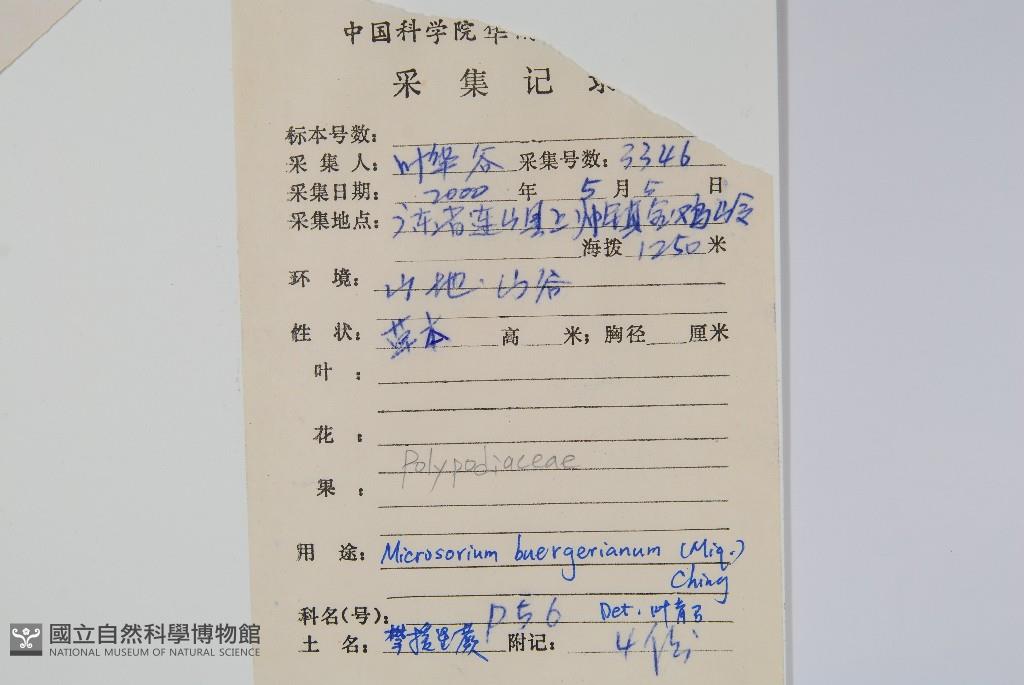 中国科学院华
采集记录
标本号数:
采集人: 叶华谷 采集号数: 3346
采集日期: 2000 年 5 月 5 日
采集地点: 广东省连山县上帅镇金鸡岭
海拨 1250 米
环境: 山地·山谷
性状: 草本 高 米; 胸径 厘米
叶:
花:
Polypodiaceae
果:
用途: Microsorium buergerianum (Miq.)
Ching
科名(号): P56 Det. 叶育石
土名: 攀援星蕨 附记: 4份
國立自然科學博物館
NATIONAL MUSEUM OF NATURAL SCIENCE